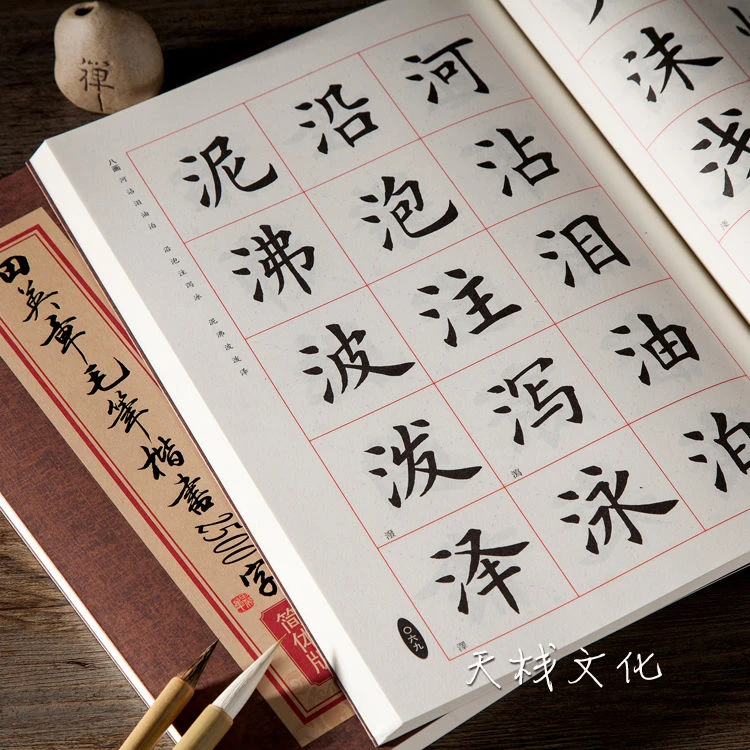 禪
沫
浅
淺
河
沾
泪
油
泊
沿
泡
注
泻
瀉
泳
泥
沸
波
泼
潑
泽
澤
八画 河沾泪油泊 沿泡注泻泳 泥沸波泼泽
〇六九
田英章毛筆楷書2500字
简体版
天栈文化